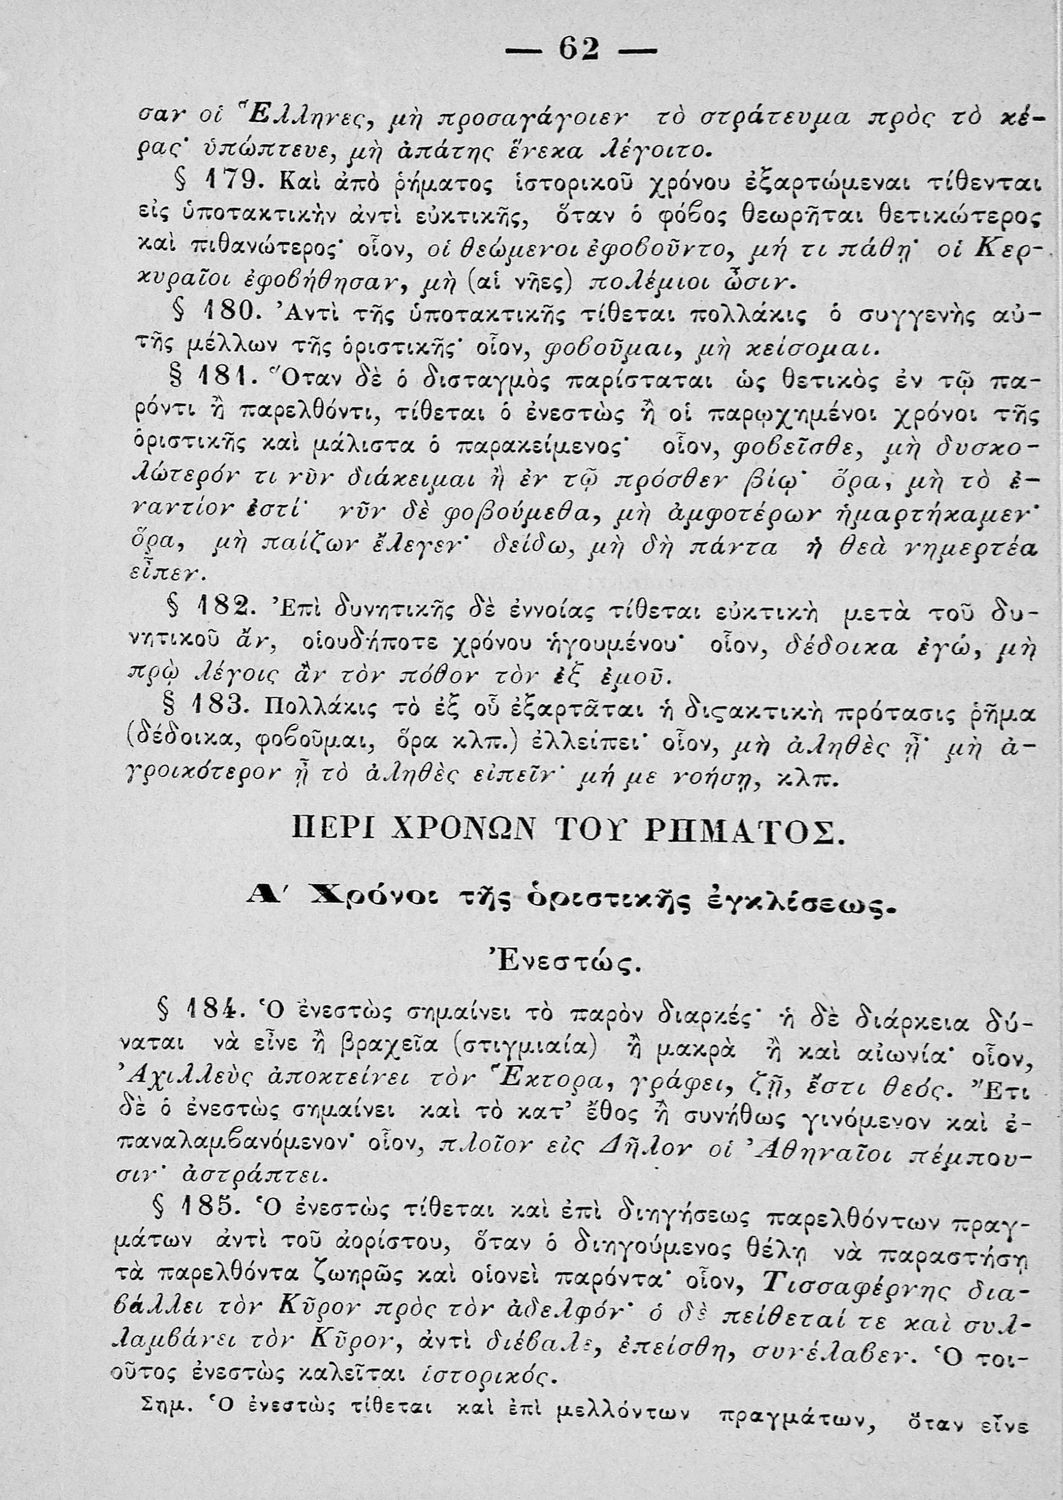 — 62 —
σαν οἱ Ἕλληνες, μὴ προσαγάγοιεν τὸ στράτευμα πρὸς τὸ κέ-
ρας· ὑπώπτευε, μὴ ἀπάτης ἕνεκα λέγοιτο.
§ 179. Καὶ ἀπὸ ῥήματος ἱστορικοῦ χρόνου ἐξαρτώμεναι τίθενται
εἰς ὑποτακτικὴν ἀντὶ εὐκτικῆς, ὅταν ὁ φόβος θεωρῆται θετικώτερος
καὶ πιθανώτερος· οἷον, οἱ θεώμενοι ἐφοβοῦντο, μή τι πάθῃ· οἱ Κερ-
κυραῖοι ἐφοβήθησαν, μὴ (αἱ νῆες) πολέμιοι ὦσιν.
§ 180. Ἀντὶ τῆς ὑποτακτικῆς τίθεται πολλάκις ὁ συγγενὴς αὐ-
τῆς μέλλων τῆς ὁριστικῆς· οἷον, φοβοῦμαι, μὴ κείσομαι.
§ 181. Ὅταν δὲ ὁ δισταγμὸς παρίσταται ὡς θετικὸς ἐν τῷ πα-
ρόντι ἢ παρελθόντι, τίθεται ὁ ἐνεστὼς ἢ οἱ παρῳχημένοι χρόνοι τῆς
ὁριστικῆς καὶ μάλιστα ὁ παρακείμενος· οἷον, φοβεῖσθε, μὴ δυσκο-
λώτερόν τι νῦν διάκειμαι ἢ ἐν τῷ πρόσθεν βίῳ· ὅρα, μὴ τὸ ἐ-
ναντίον ἐστί· νῦν δὲ φοβούμεθα, μὴ ἀμφοτέρων ἡμαρτήκαμεν·
ὅρα, μὴ παίζων ἔλεγεν· δείδω, μὴ δὴ πάντα ἡ θεὰ νημερτέα
εἶπεν.
§ 182. Ἐπὶ δυνητικῆς δὲ ἐννοίας τίθεται εὐκτικὴ μετὰ τοῦ δυ-
νητικοῦ ἄν, οἱουδήποτε χρόνου ἡγουμένου· οἷον, δέδοικα ἐγώ, μὴ
πρῲ λέγοις ἂν τὸν πόθον τὸν ἐξ ἐμοῦ.
§ 183. Πολλάκις τὸ ἐξ οὗ ἐξαρτᾶται ἡ διςακτικὴ πρότασις ῥῆμα
(δέδοικα, φοβοῦμαι, ὅρα κλπ.) ἐλλείπει· οἷον, μὴ ἀληθὲς ᾖ· μὴ ἀ-
γροικότερον ᾖ τὸ ἀληθὲς εἰπεῖν· μή με νοήσῃ, κλπ.
ΠΕΡΙ ΧΡΟΝΩΝ ΤΟΥ ΡΗΜΑΤΟΣ.
Α′ Χρόνοι τῆς ὁριστικῆς ἐγκλίσεως.
Ἐνεστώς.
§ 184. Ὁ ἐνεστὼς σημαίνει τὸ παρὸν διαρκές· ἡ δὲ διάρκεια δύ-
ναται νὰ εἶνε ἢ βραχεῖα (στιγμιαία) ἢ μακρὰ ἢ καὶ αἰωνία· οἷον,
Ἀχιλλεὺς ἀποκτείνει τὸν Ἕκτορα, γράφει, ζῇ, ἔστι θεός. Ἔτι
δὲ ὁ ἐνεστὼς σημαίνει καὶ τὸ κατ' ἔθος ἢ συνήθως γινόμενον καὶ ἐ-
παναλαμβανόμενον· οἷον, πλοῖον εἰς Δῆλον οἱ Ἀθηναῖοι πέμπου-
σιν· ἀστράπτει.
§ 185. Ὁ ἐνεστὼς τίθεται καὶ ἐπὶ διηγήσεως παρελθόντων πραγ-
μάτων ἀντὶ τοῦ ἀορίστου, ὅταν ὁ διηγούμενος θέλῃ νὰ παραστήσῃ
τὰ παρελθόντα ζωηρῶς καὶ οἱονεὶ παρόντα· οἷον, Τισσαφέρνης δια-
βάλλει τὸν Κῦρον πρὸς τὸν ἀδελφόν· ὁ δὲ πείθεταί τε καὶ συλ-
λαμβάνει τὸν Κῦρον, ἀντὶ διέβαλε, ἐπείσθη, συνέλαβεν. Ὁ τοι-
οῦτος ἐνεστὼς καλεῖται ἱστορικός.
Σημ. Ὁ ἐνεστὼς τίθεται καὶ ἐπὶ μελλόντων πραγμάτων, ὅταν εἶνε